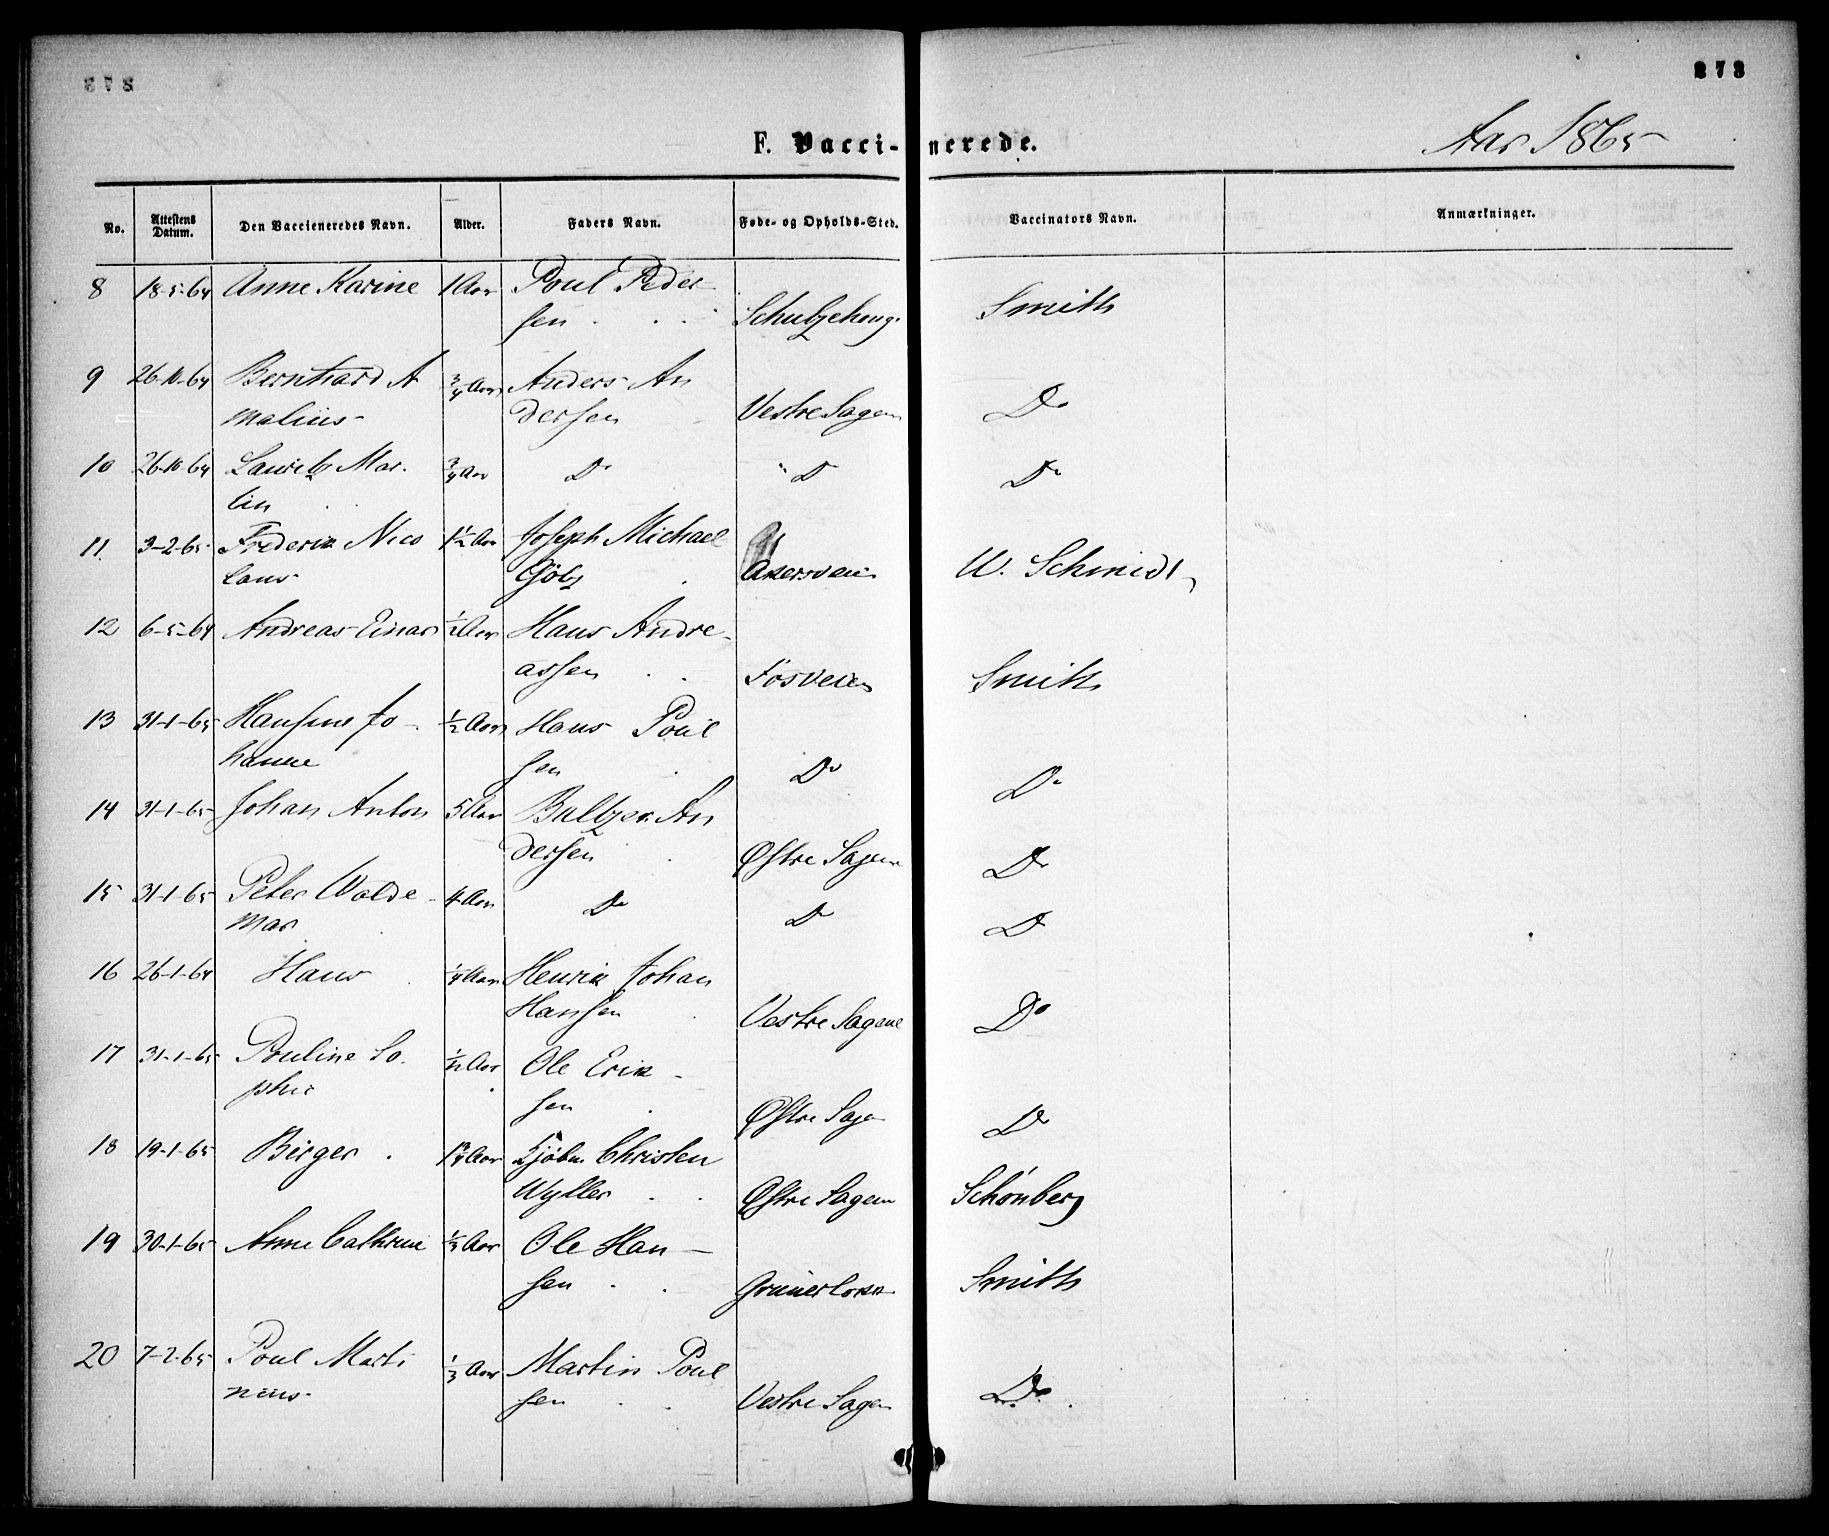 273
273
F. Vaccienerede.
Aar 1865
No. Attestens Datum. Den Vaccieneredes Navn. Alder. Faders Navn. Føde- og Opholds-Sted. Vaccinators Navn. Anmærkninger.
8 18-5-64 Anne Karine 1 Aar Poul Peder
sen Schultzehaug. Smith
9 26-10-64 Bernhard A ¾ Aar Anders An
malius dersen Vestre Sagen Do
10 26-10-64 Lauritz Mar. ¾ Aar Do Do Do
tin
11 3-2-65 Frederik Nico 1½ Aar Joseph Michael
laus Götz Akersveien W. Schmidt
12 6-5-64 Andreas Einar ½ Aar Hans Andre-
assen Fosveien Smith
13 31-1-65 Hansine Jo- ½ Aar Hans Poul
hanne sen Do Do
14 31-1-65 Johan Anton 5 Aar Baltzer An
dersen Østre Sagen Do
15 31-1-65 Peter Walde- 4 Aar Do Do Do
mar
16 26-1-64 Hans ¼ Aar Henrik Johan
Hansen Vestre Sagene Do
17 31-1-65 Pouline So. ½ Aar Ole Erik-
phie sen Østre Sagen Do
18 19-1-65 Birger 1¾ Aar Christen
Wyller Østre Sagen Schönberg
19 30-1-65 Anne Cathrine ⅓ Aar Ole Han-
sen Grünerløkk Smith
20 7-2-65 Poul Marti ⅓ Aar Martin Poul
nius sen Vestre Sagen Do